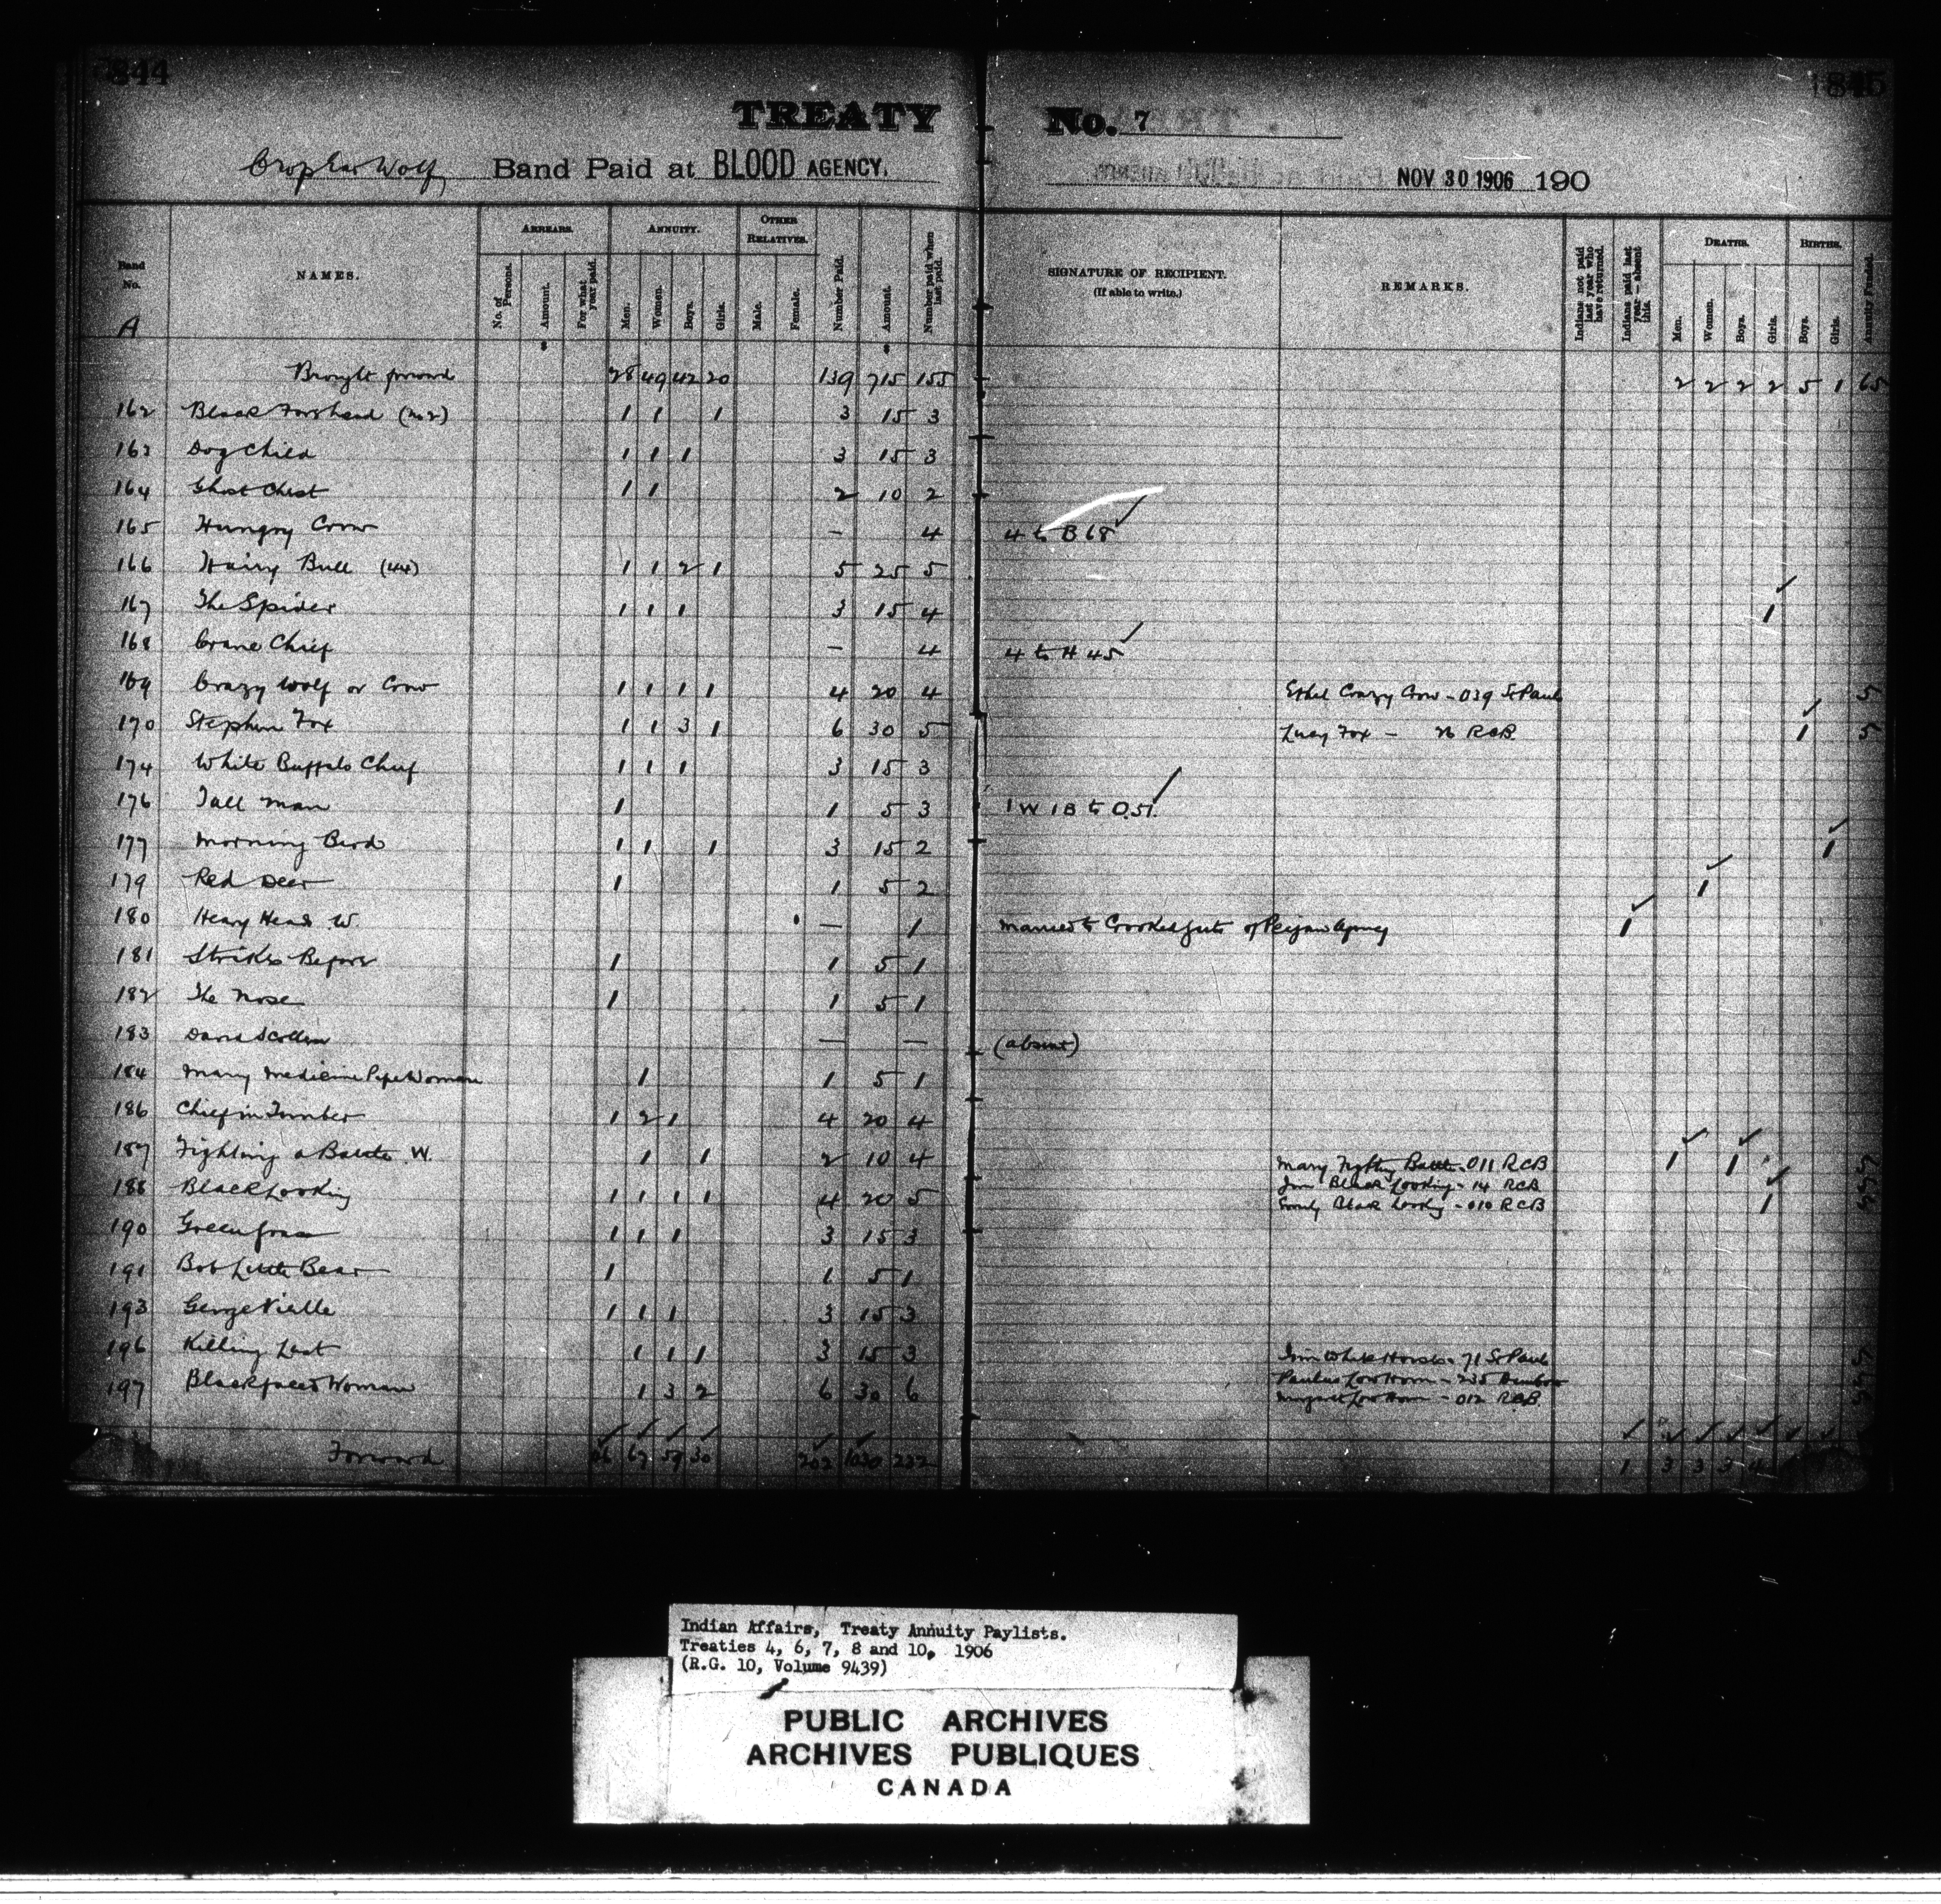 844
1845
TREATY No. 7
Crop Ear Wolf Band Paid at BLOOD AGENCY. NOV 30 1906 190
Band No. NAMES. ARREARS. ANNUITY. OTHER RELATIVES. Number Paid. Amount. Number paid when last paid. SIGNATURE OF RECIPIENT. (If able to write.) REMARKS. Indians not paid last year who have returned. Indians paid last year—absent this. DEATHS. BIRTHS. Annuity Funded.
No. of Persons. Amount. For what year paid. Men. Women. Boys. Girls. Male. Female. Men. Women. Boys. Girls. Boys. Girls.
A
Brought forward 28 49 42 20 139 715 155 2 2 2 2 5 1 65
162 Black Forehead (No 2) 1 1 1 3 15 3
163 Dog Child 1 1 1 3 15 3
164 Ghost Chest 1 1 2 10 2
165 Hungry Crow — 4 4 to B 68 ✓
166 Hairy Bull (44) 1 1 2 1 5 25 5
167 The Spider 1 1 1 3 15 4 1 ✓
168 Crane Chief — 4 4 to H 45 ✓
169 Crazy Wolf or Crow 1 1 1 1 4 20 4 Ethel Crazy Crow - 039 St Paul 5
170 Stephen Fox 1 1 3 1 6 30 5 Lucy Fox - 26 RCB 1 ✓ 5
174 White Buffalo Chief 1 1 1 3 15 3
176 Tall Man 1 1 5 3 1 W 1 B to O.51. ✓
177 Morning Bird 1 1 1 3 15 2 1 ✓
179 Red Deer 1 1 5 2 1 ✓
180 Heavy Head W. — 1 Married to Crooked of Peigan Agency 1 ✓
181 Strikes Before 1 1 5 1
182 The Nose 1 1 5 1
183 David Scollen — — (absent)
184 Mary Medicine Pipe Woman 1 1 5 1
186 Chief in Timber 1 2 1 4 20 4
187 Fighting a Battle W. 1 1 2 10 4 Mary Fighting Battle - 011 RCB 1 ✓ 1 ✓ 5
188 Black Looking 1 1 1 1 4 20 5 Jim Black Looking - 14 RCB
Emily Black Looking - 010 RCB 1 ✓
190 Green Grass 1 1 1 3 15 3
191 Bob Little Bear 1 1 5 1
193 George Vielle 1 1 1 3 15 3
196 Killing Last 1 1 1 3 15 3 Jim White Horse - 71 St Paul
197 Blackfaced Woman 1 3 2 6 30 6 Paulus Low Horn - 235 Dunbow
Margaret Low Horn - 012 RCB
Forward 46 67 59 30 202 1030 232 1 3 3 3 4
Indian Affairs, Treaty Annuity Paylists.
Treaties 4, 6, 7, 8 and 10, 1906
(R.G. 10, Volume 9439)
PUBLIC ARCHIVES
ARCHIVES PUBLIQUES
CANADA